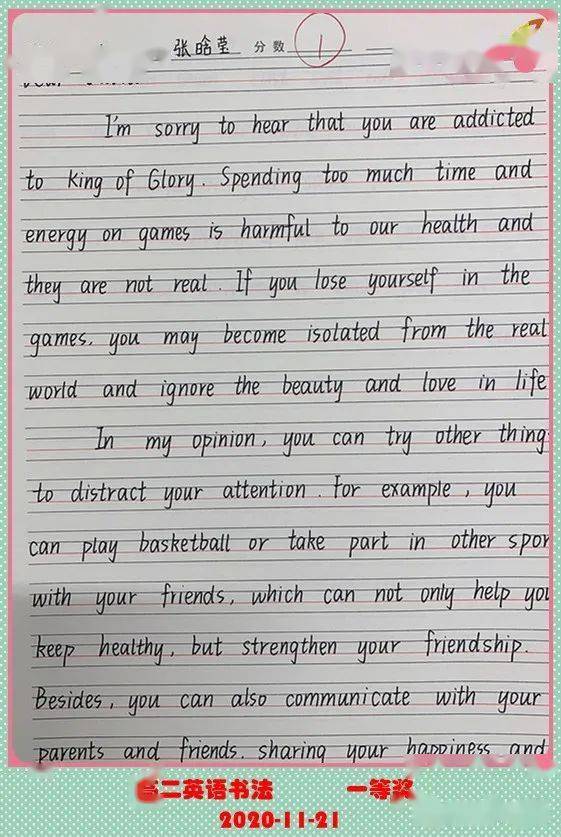 张晗莹 分数 1
I'm sorry to hear that you are addicted
to King of Glory. Spending too much time and
energy on games is harmful to our health and
they are not real. If you lose yourself in the
games, you may become isolated from the real
world and ignore the beauty and love in life
In my opinion, you can try other thing
to distract your attention. For example, you
can play basketball or take part in other spor
with your friends, which can not only help you
keep healthy, but strengthen your friendship.
Besides, you can also communicate with your
parents and friends. sharing your happiness and
二英语书法 一等奖
2020-11-21